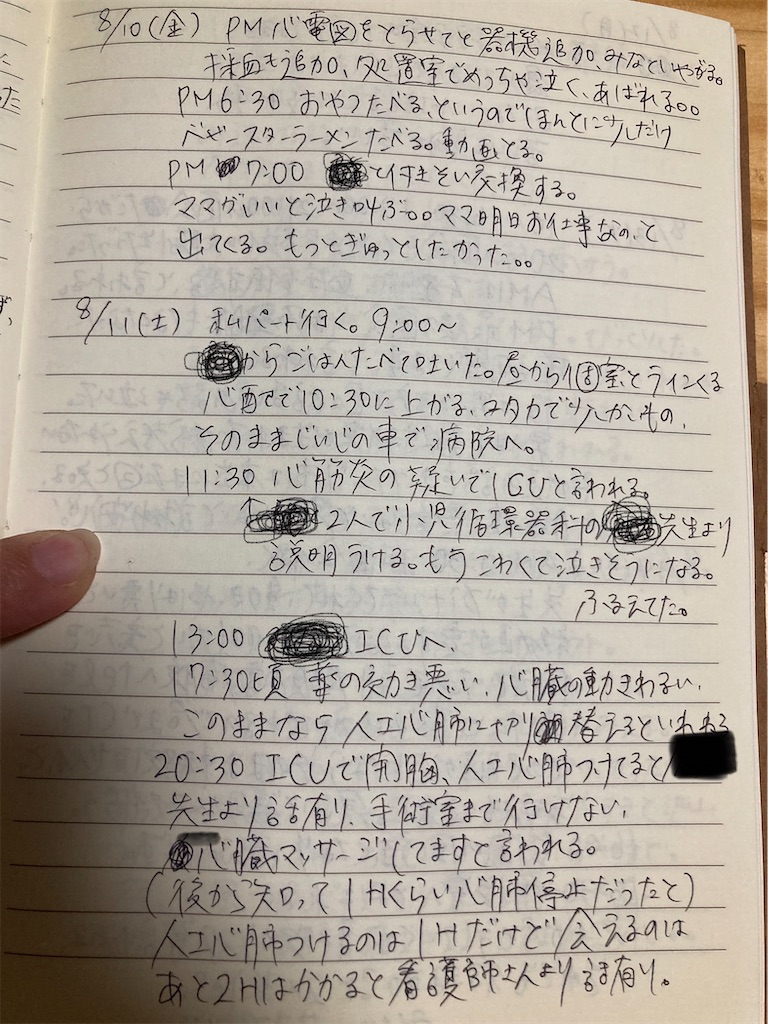 8/10(金) PM 心電図をとらせてと器機追加、みなといやがる。
採血も追加、処置室でめっちゃ泣く、あばれる。。
PM6:30 おやつたべる、というのでほんとに少しだけ
ベビースターラーメンたべる。動画とる。
PM 7:00 と付きそい交換する。
ママがいいと泣き叫ぶ。。ママ明日お仕事なの、と
出てくる。もっとぎゅっとしたかった。。
8/11(土) 私パート行く。9:00〜
からごはんたべて吐いた。昼から個室とラインくる
心配で10:30に上がる、ユタカで少しかいもの、
そのままじいじの車で病院へ。
11:30 心筋炎の疑いでICUと言われる。
と2人で小児循環器科の 先生より
説明うける。もうこわくて泣きそうになる。
ふるえてた。
13:00 ICUへ、
17:30頃 薬の効き悪い、心臓の動きわるい、
このままなら人工心肺にやり替えるといわれる
20:30 ICUで開胸、人工心肺つけてると
先生より話有り、手術室まで行けない、
心臓マッサージしてますと言われる。
(後から知って1Hくらい心肺停止だったと)
人工心肺つけるのは1Hだけど会えるのは
あと2Hはかかると看護師さんより話有り。